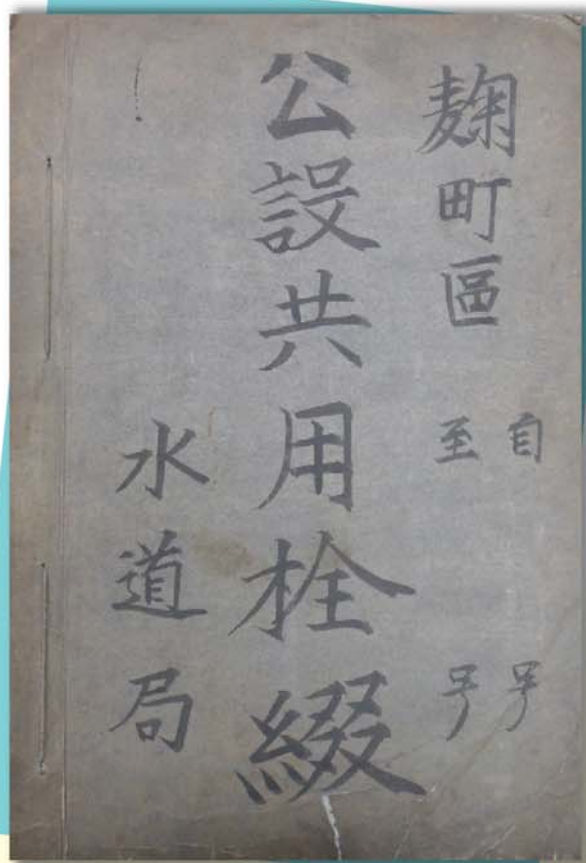 麹町區
自 号
至 号
公設共用栓綴
水道局